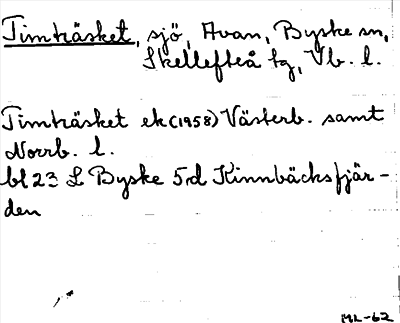 Timträsket, sjö, Avan, Byske sn,
Skellefteå tg, Vb. l.
Timträsket ek (1958) Västerb. samt
Norrb. l.
bl 23 L Byske 5d Kinnbäcksfjär-
den
ML-62